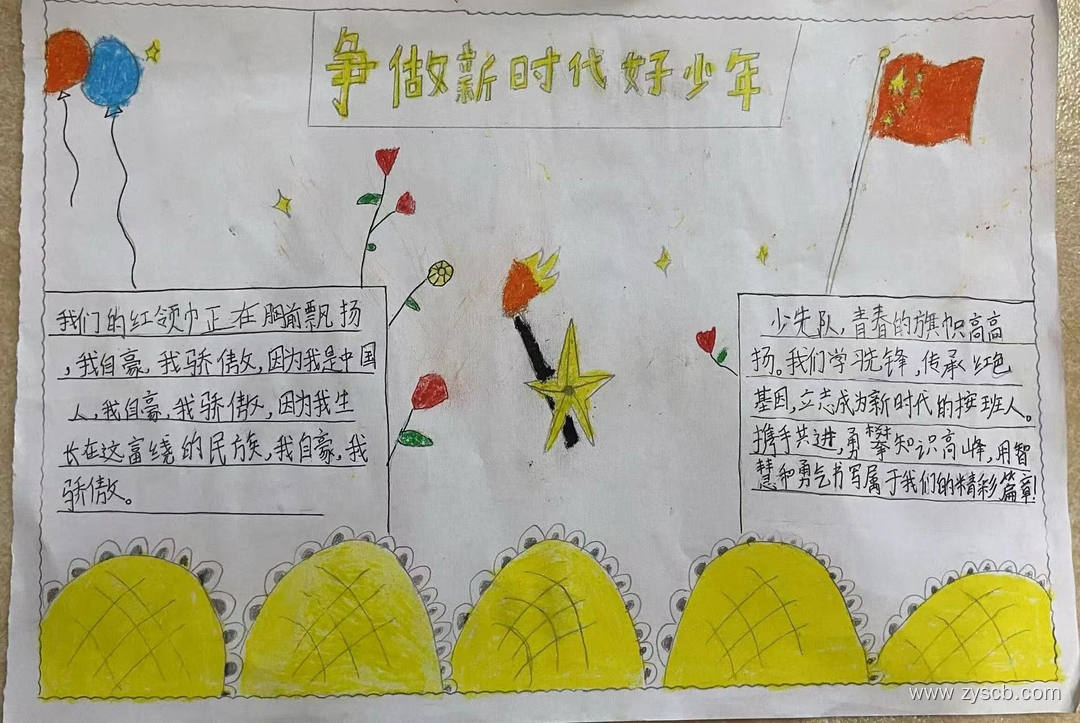 争做新时代好少年
我们的红领巾正在胸前飘扬
,我自豪,我骄傲,因为我是中国
人,我自豪,我骄傲,因为我生
长在这富绕的民族,我自豪,我
骄傲。
少先队,青春的旗帜高高
扬。我们学习先锋,传承红色
基因,立志成为新时代的接班人。
携手共进,勇攀知识高峰,用智
慧和勇气书写属于我们的精彩篇章!
www.zyscb.com